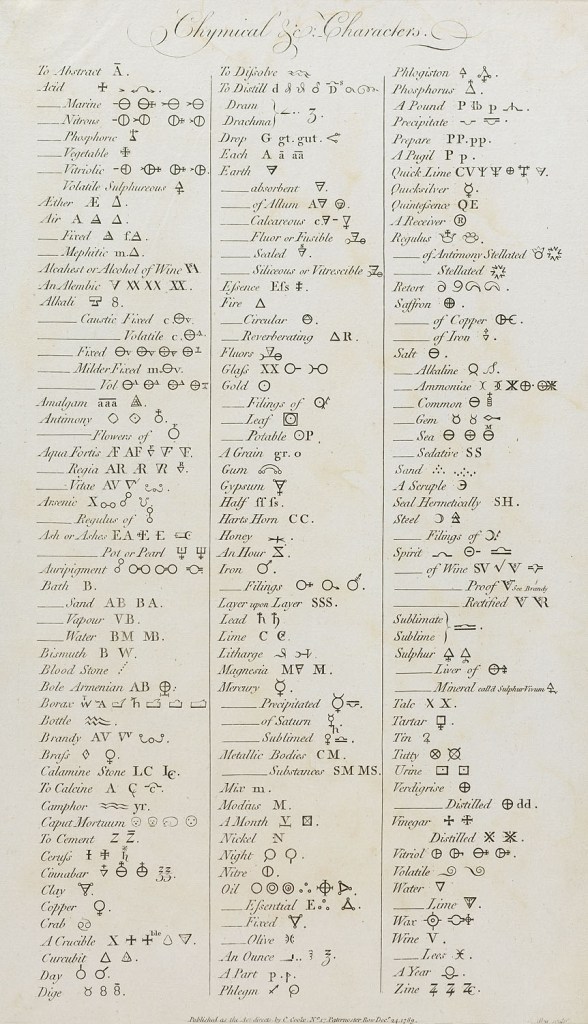 Chymical &c. Characters.
To Abstract Ā.
Acid
Marine
Nitrous
Phosphoric
Vegetable
Vitriolic
Volatile Sulphureous
Æther Æ
Air A
Fixed
Mephitic m.
Alcahest or Alcohol of Wine
An Alembic XX XX XX.
Alkali 8.
Caustic Fixed c.
Volatile c.
Fixed
Milder Fixed m.
Vol
Amalgam a͞a͞a
Antimony
Flowers of
Aqua Fortis Æ AF
Regia AR
Vitæ AV
Arsenic
Regulus of
Ash or Ashes EA
Pot or Pearl
Auripigment
Bath B.
Sand AB BA.
Vapour VB.
Water BM MB.
Bismuth B W.
Blood Stone
Bole Armenian AB
Borax
Bottle
Brandy AV
Brass
Calamine Stone LC
To Calcine A
Camphor yr.
Caput Mortuum
To Cement Z Z.
Ceruss
Cinnabar
Clay
Copper
Crab
A Crucible X
Curcubit
Day
Dige 8 8.
To Dissolve
To Distill d
Dram
Drachma
Drop G gt. gut.
Each A ā āā
Earth
absorbent
of Allum
Calcareous
Fluor or Fusible
Sealed
Siliceous or Vitrescible
Essence Eſs
Fire
Circular
Reverberating R.
Fluors
Glaſs XX
Gold
Filings of
Leaf
Potable
A Grain gr. o
Gum
Gypsum
Half ſſ ſs.
Harts Horn C C.
Honey
An Hour
Iron
Filings
Layer upon Layer SSS.
Lead
Lime C
Litharge
Magnesia
Mercury
Precipitated
of Saturn
Sublimed
Metallic Bodies C M.
Substances SM MS.
Mix m.
Modius M.
A Month
Nickel
Night
Nitre
Oil
Eſsential E
Fixed
Olive
An Ounce
A Part p. p.
Phlegm
Phlogiston
Phosphorus
A Pound P ℔ p
Precipitate
Prepare PP. pp.
A Pugil P p.
Quick Lime CV
Quicksilver
Quintessence QE
A Receiver
Regulus
of Antimony Stellated
Stellated
Retort
Saffron
of Copper
of Iron
Salt
Alkaline
Ammoniac
Common
Gem
Sea
Sedative SS
Sand
A Scruple ℈
Seal Hermetically SH.
Steel
Filings of
Spirit
of Wine SV
Proof See Brandy
Rectified
Sublimate
Sublime
Sulphur
Liver of
Mineral call'd Sulphur Vivum
Talc X X.
Tartar
Tin
Tutty
Urine
Verdigrise
Distilled dd.
Vinegar
Distilled
Vitriol
Volatile
Water
Lime
Wax
Wine V.
Lees
A Year
Zinc
Published as the Act directs by C. Cooke, No. 17, Paternoster Row Decr. 24, 1789.